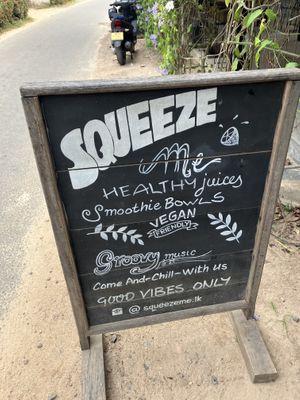 SQUEEZE
Me
HEALTHY juices
Smoothie BowLs
VEGAN
FRIENDLY
Groovy music
Come And-Chill-With Us
GOOD VIBES ONLY
@ squeezeme.lk